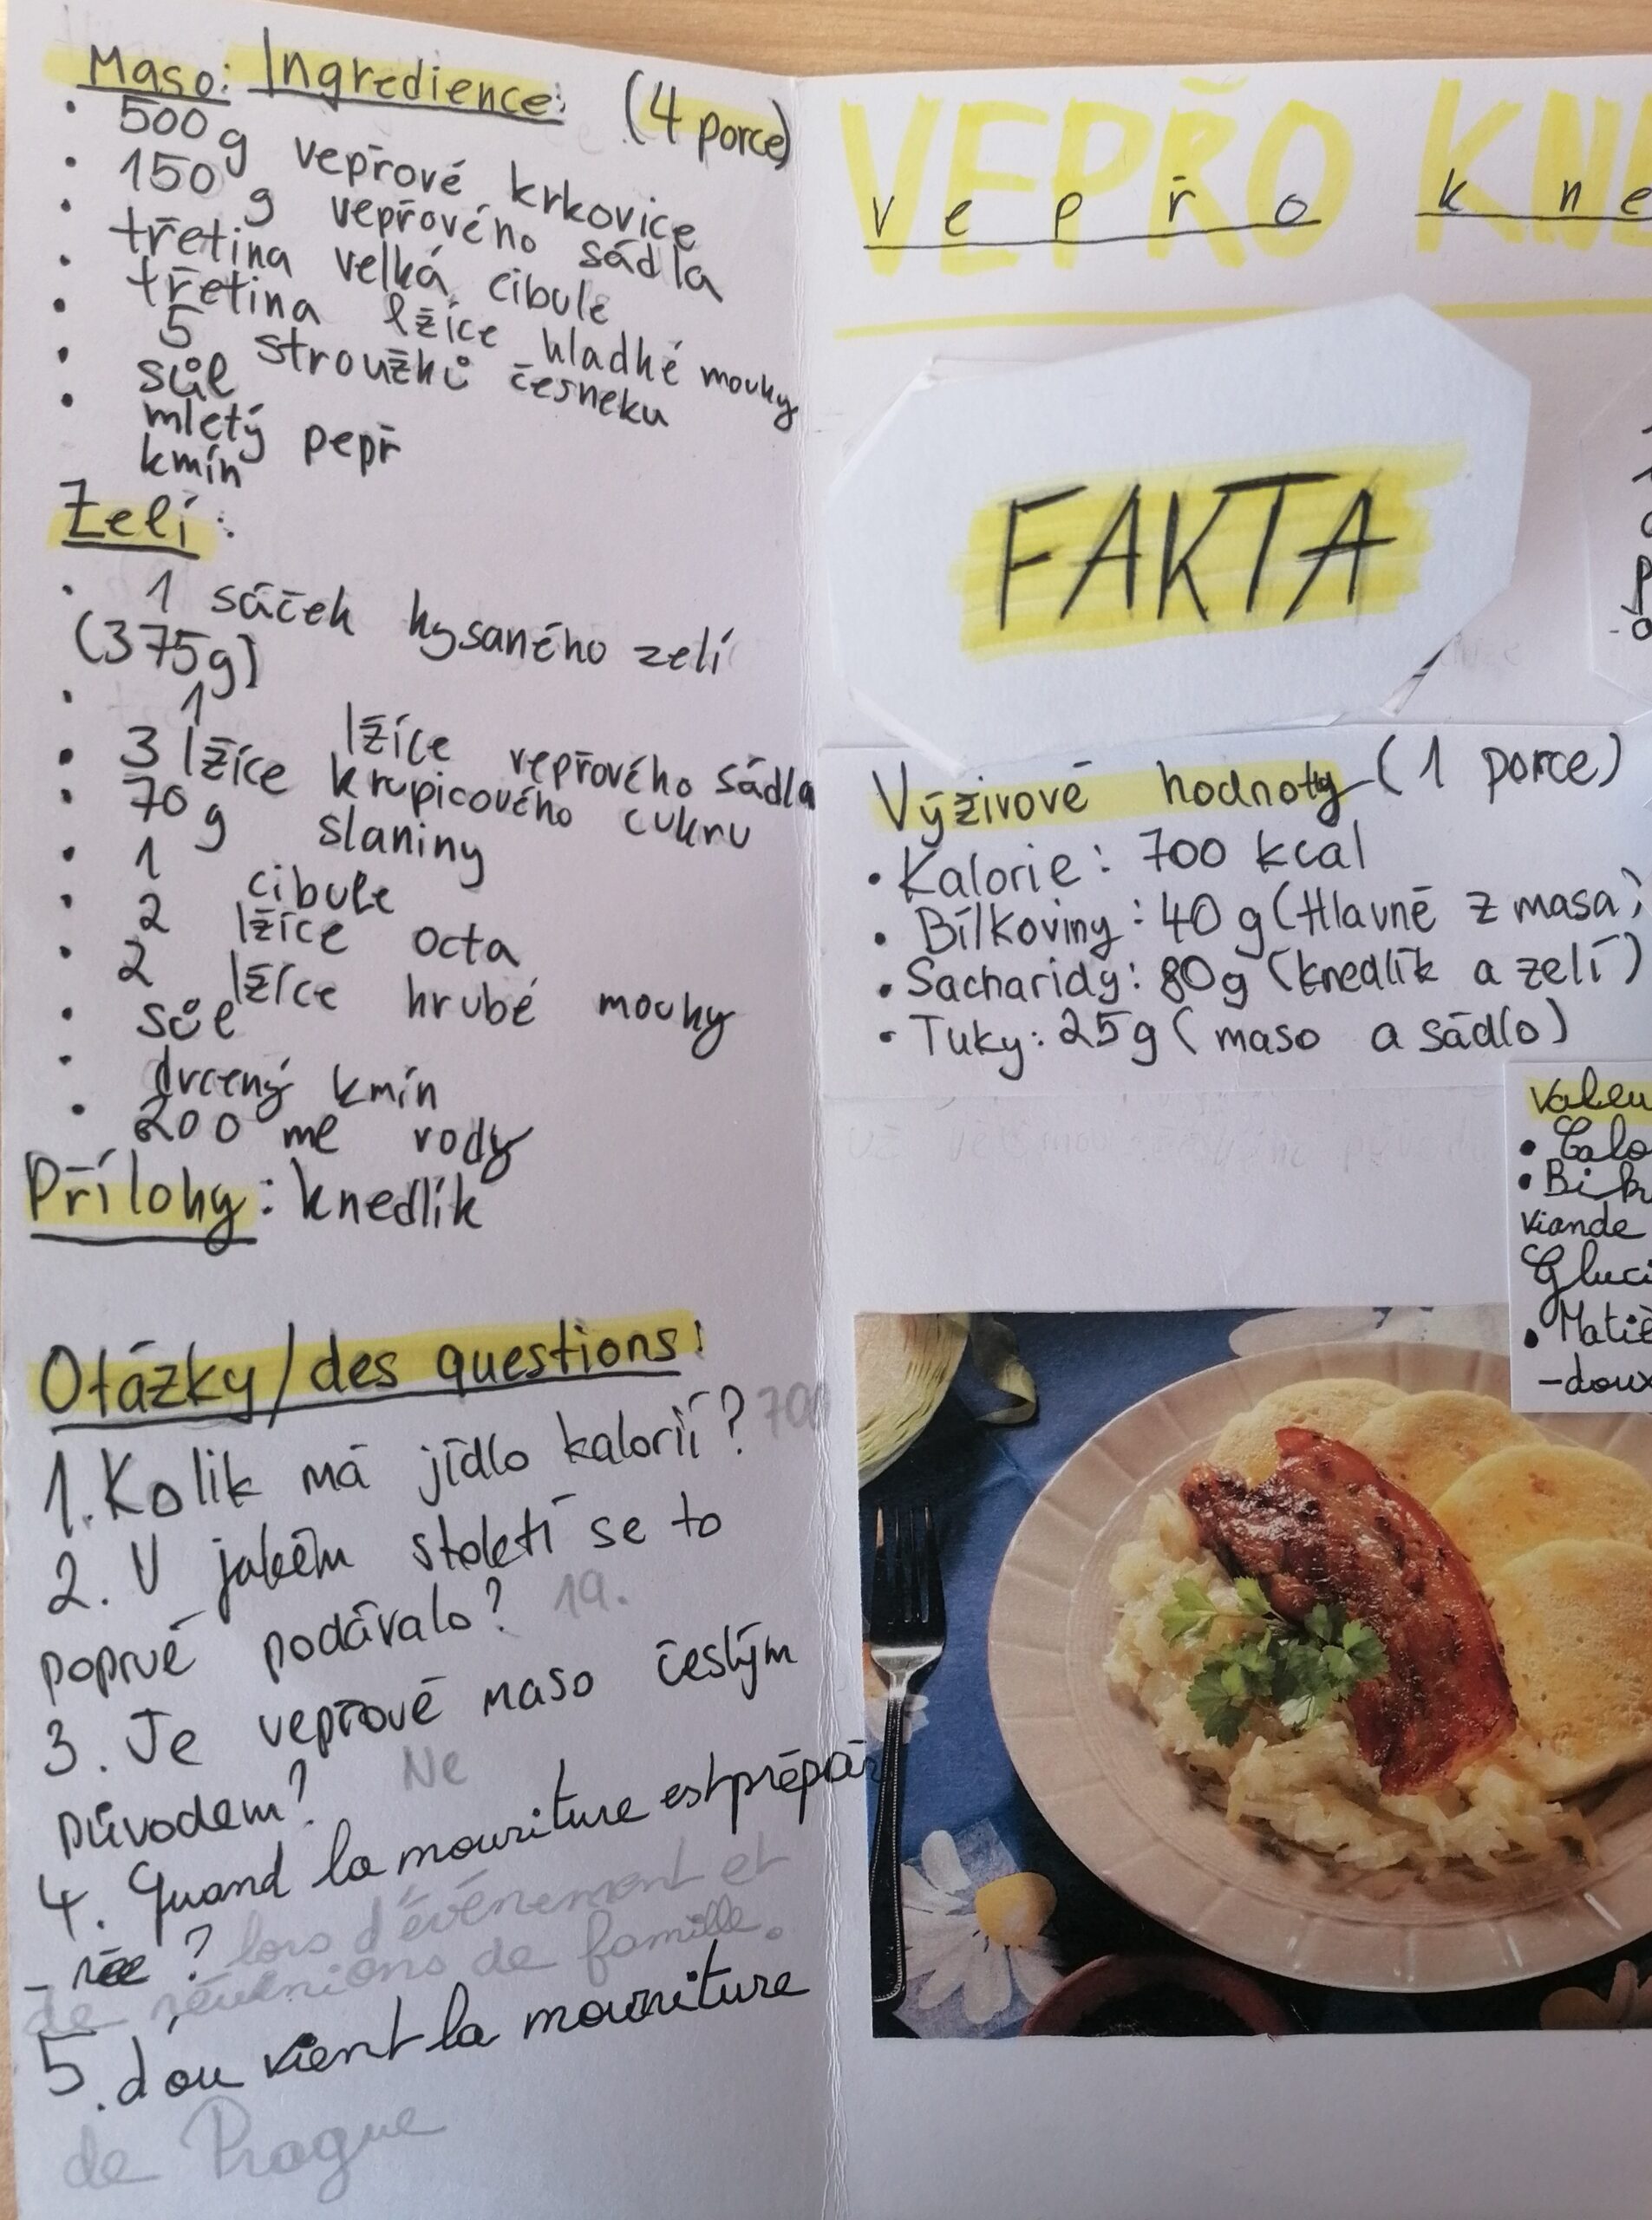 Maso: Ingredience: (4 porce)
• 500 g vepřové krkovice
• 150 g vepřového sádla
• třetina velká cibule
• třetina lžíce hladké mouky
• 5 stroužků česneku
• sůl
• mletý pepř
kmín
Zelí:
• 1 sáček kysaného zelí
(375g)
• 1 lžíce vepřového sádla
• 3 lžíce krupicového cukru
• 70 g slaniny
• 1 cibule
• 2 lžíce octa
• 2 lžíce hrubé mouky
• sůl
• drcený kmín
• 200 ml vody
Přílohy: knedlík
Otázky/des questions:
1. Kolik má jídlo kalorií? 700
2. V jakém století se to
poprvé podávalo? 19.
3. Je vepřové maso českým
původem? Ne
4. Quand la nourriture est prépa
-rée ? lors d'événement et
de réunions de famille.
5. d'ou vient la nourriture
de Prague
VEPŘO KNE
vepřo kne
FAKTA
Výživové hodnoty (1 porce)
• Kalorie: 700 kcal
• Bílkoviny: 40 g (Hlavně z masa)
• Sacharidy: 80g (knedlík a zelí)
• Tuky: 25g (maso a sádlo)
Valeu
• Calo
viande
Gluci
• Matiè